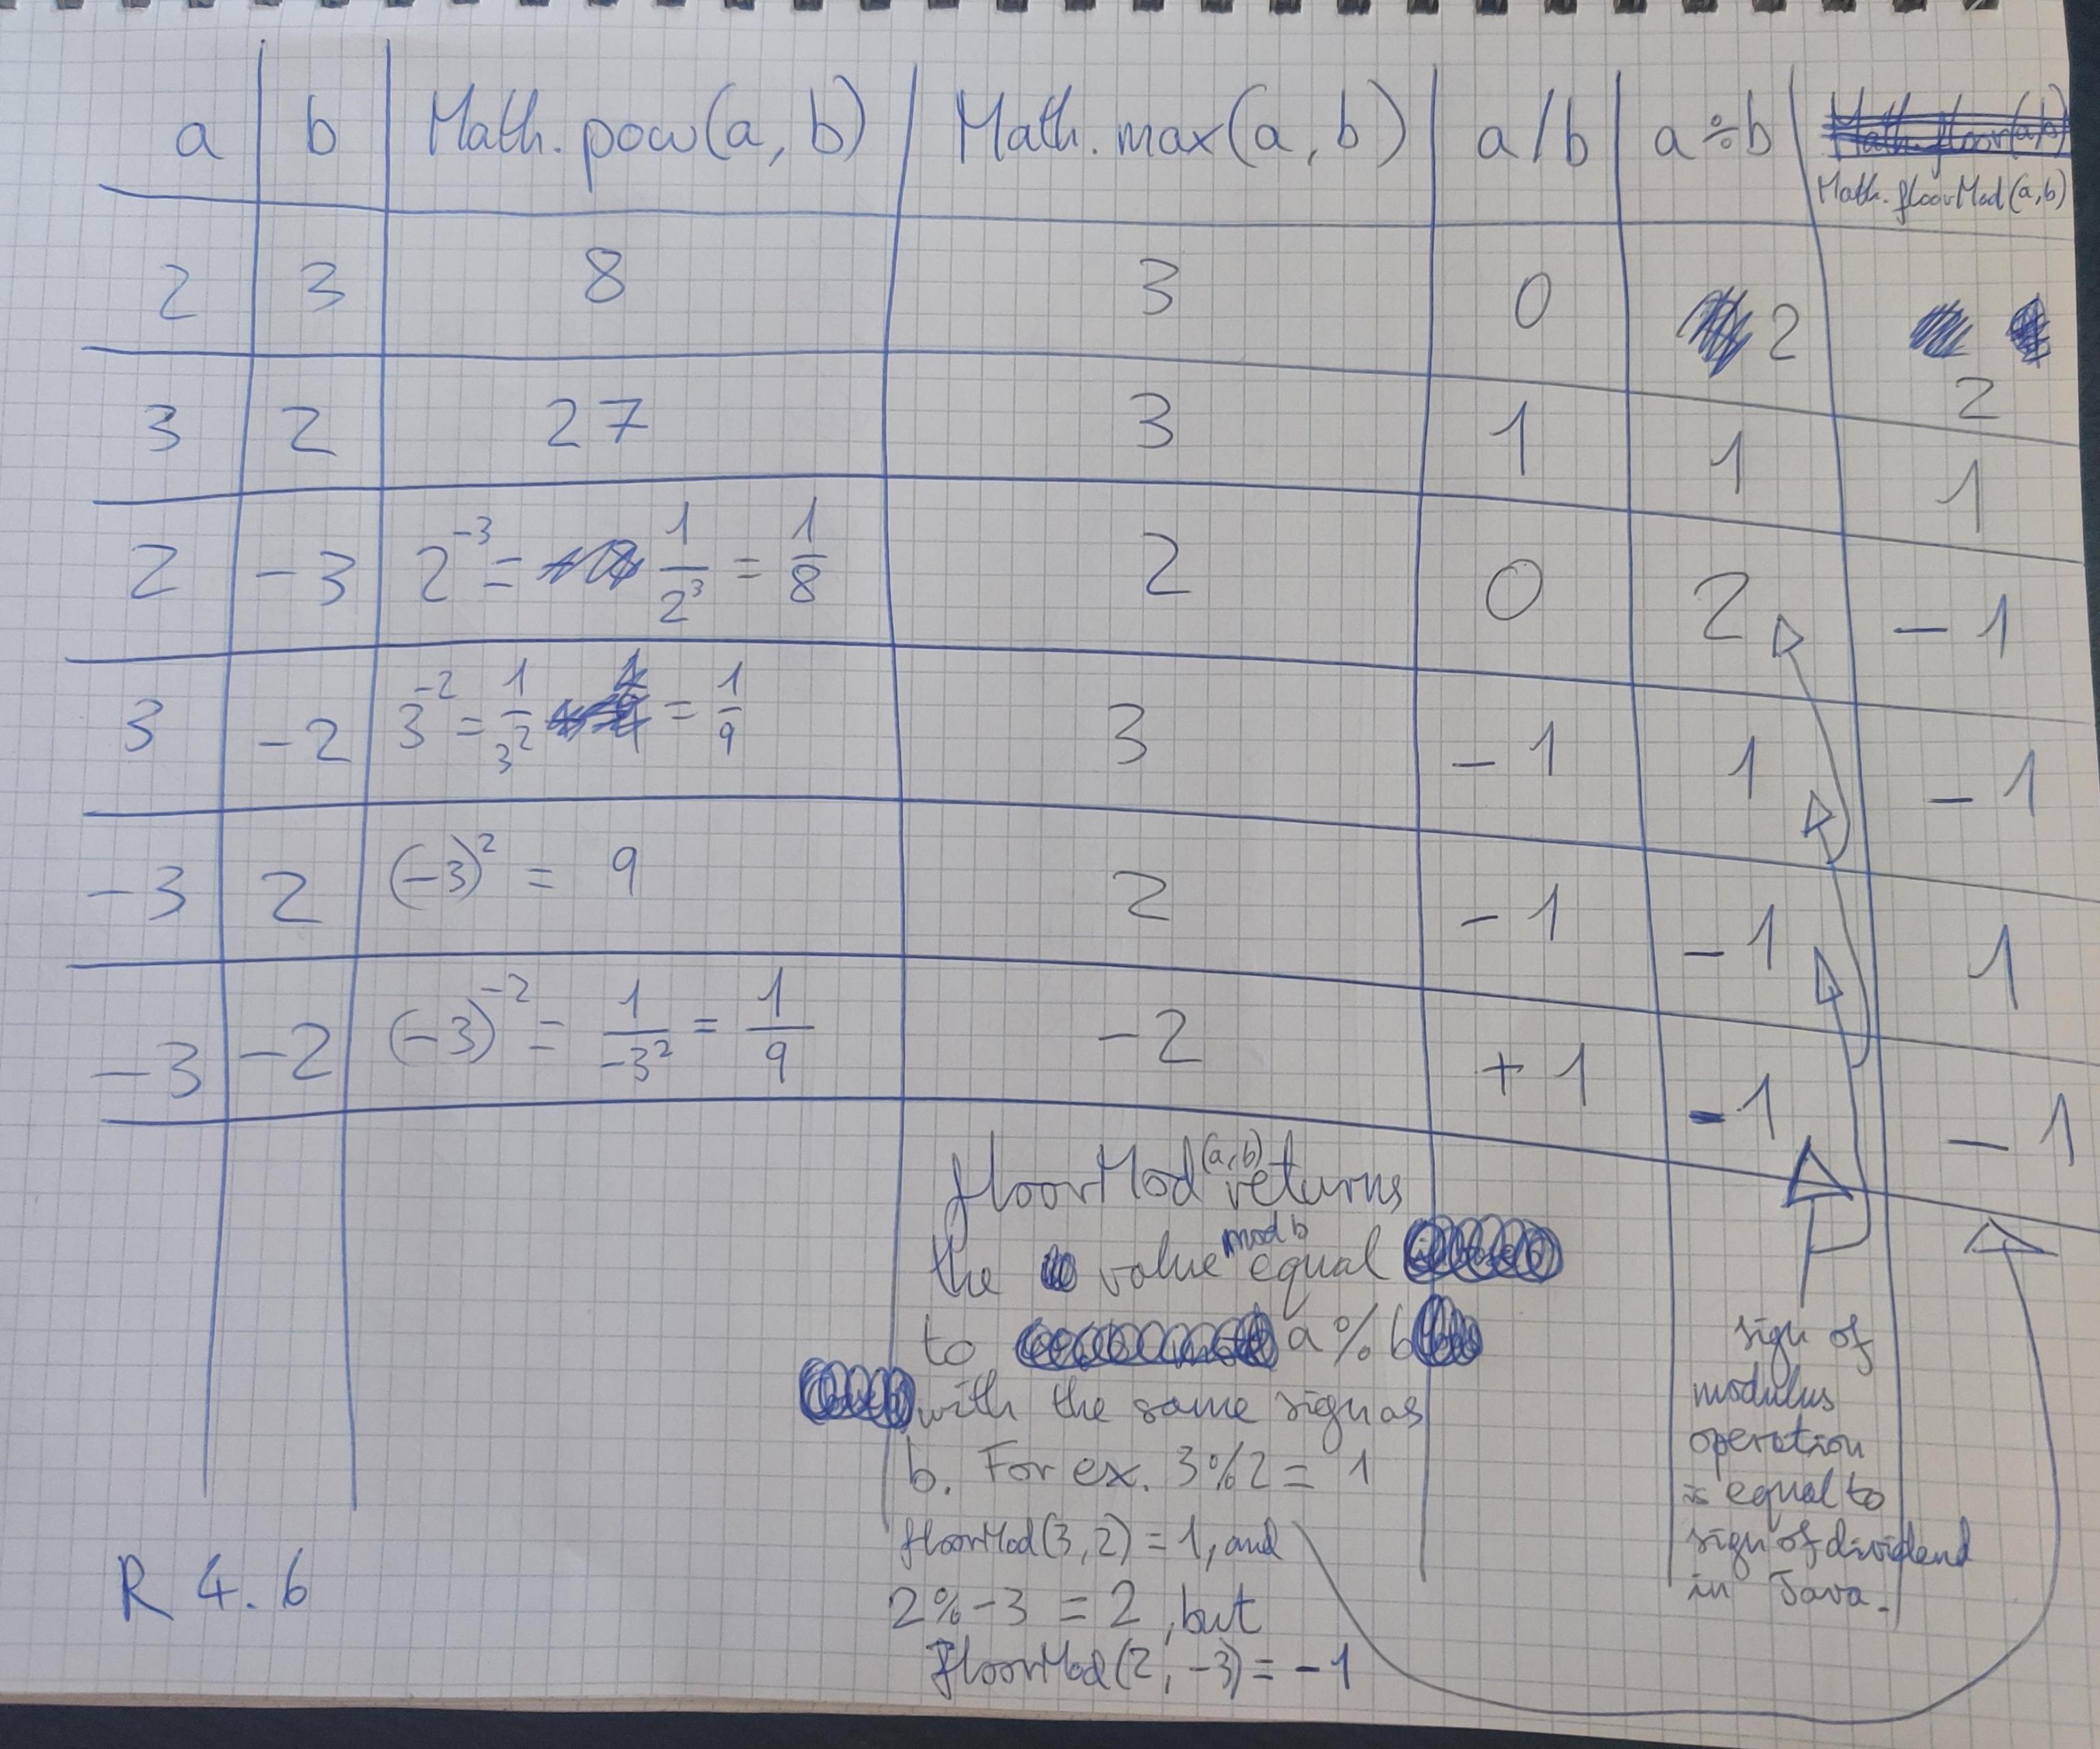 a b Math.pow(a, b) Math.max(a, b) a/b a%b Math.floorMod(a,b)
2 3 8 3 0 2 2
3 2 27 3 1 1 1
2 -3 2^-3 = 1/2^3 = 1/8 2 0 2 -1
3 -2 3^-2 = 1/3^2 = 1/9 3 -1 1 -1
-3 2 (-3)^2 = 9 2 -1 -1 1
-3 -2 (-3)^-2 = 1/-3^2 = 1/9 -2 +1 -1 -1
floorMod(a,b) returns
the value mod b equal
to a%b
with the same sign as
b. For ex. 3%2 = 1
floorMod(3,2) = 1, and
2%-3 = 2, but
floorMod(2, -3) = -1
sign of
modulus
operation
is equal to
sign of dividend
in Java.
R 4.6